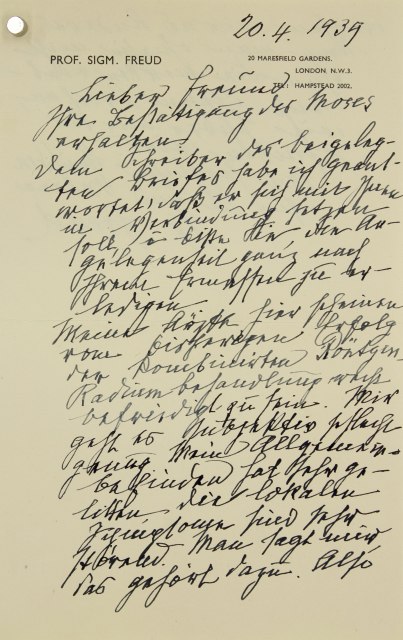 20.4.1939
PROF. SIGM. FREUD
20 MARESFIELD GARDENS.
LONDON, N.W.3.
TEL: HAMPSTEAD 2002.
Lieber Freund
Ihre Bestätigung des Moses
erhalten.
Dem Schreiber des beigeleg-
ten Briefes habe ich geant-
wortet, daß er sich mit Ihnen
in Verbindung setzen
soll, u bitte Sie die An-
gelegenheit ganz nach
Ihrem Ermessen zu er-
ledigen.
Meine Ärzte hier scheinen
vom bisherigen Erfolg
der kombinirten Röntgen-
Radiumbehandlung recht
befriedigt zu sein. Mir
geht es subjektiv schlecht
genug. Mein Allgemein-
befinden hat sehr ge-
litten, die lokalen
Symptome sind sehr
störend. Man sagt mir
das gehört dazu. Also